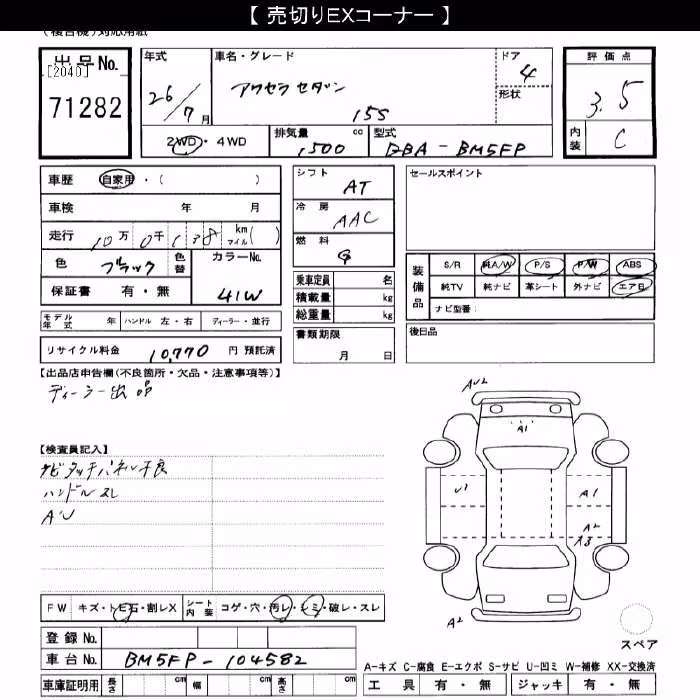 【 売切りEXコーナー 】
(複合機)対応用紙
出品No.
[2040]
71282
年式
26/7月
車名・グレード
アクセラセダン
15S
ドア
4
形状
評価点
3.5
内装
C
2WD・4WD
排気量 cc
1500
型式
DBA-BM5FP
車歴 自家用・( )
車検 年 月
走行 10万 0千 138 km マイル ( )
色 ブラック 色替
カラーNo.
41W
保証書 有・無
モデル年式 年 ハンドル 左・右 ディーラー・並行
リサイクル料金 10,770 円 預託済
シフト
AT
冷房
AAC
燃料
G
乗車定員 名
積載量 kg
総重量 kg
書類期限
月 日
セールスポイント
装備品
S/R 純A/W P/S P/W ABS
純TV 純ナビ 革シート 外ナビ エア日
ナビ型番:
後日品
【出品店申告欄(不良箇所・欠品・注意事項等)】
ディーラー出品
【検査員記入】
ナビタッチパネル不良
ハンドルスレ
AU
AU2
A1
U1
A1
A2
A3
A2
スペア
FW キズ・トビ石・割レX
シート内装 コゲ・穴・汚レ・シミ・破レ・スレ
登録No.
車台No. BM5FP-104582
車庫証明用 長さ cm 幅 cm 高さ cm
A-キズ C-腐食 E-エクボ S-サビ U-凹ミ W-補修 XX-交換済
工具 有・無 ジャッキ 有・無